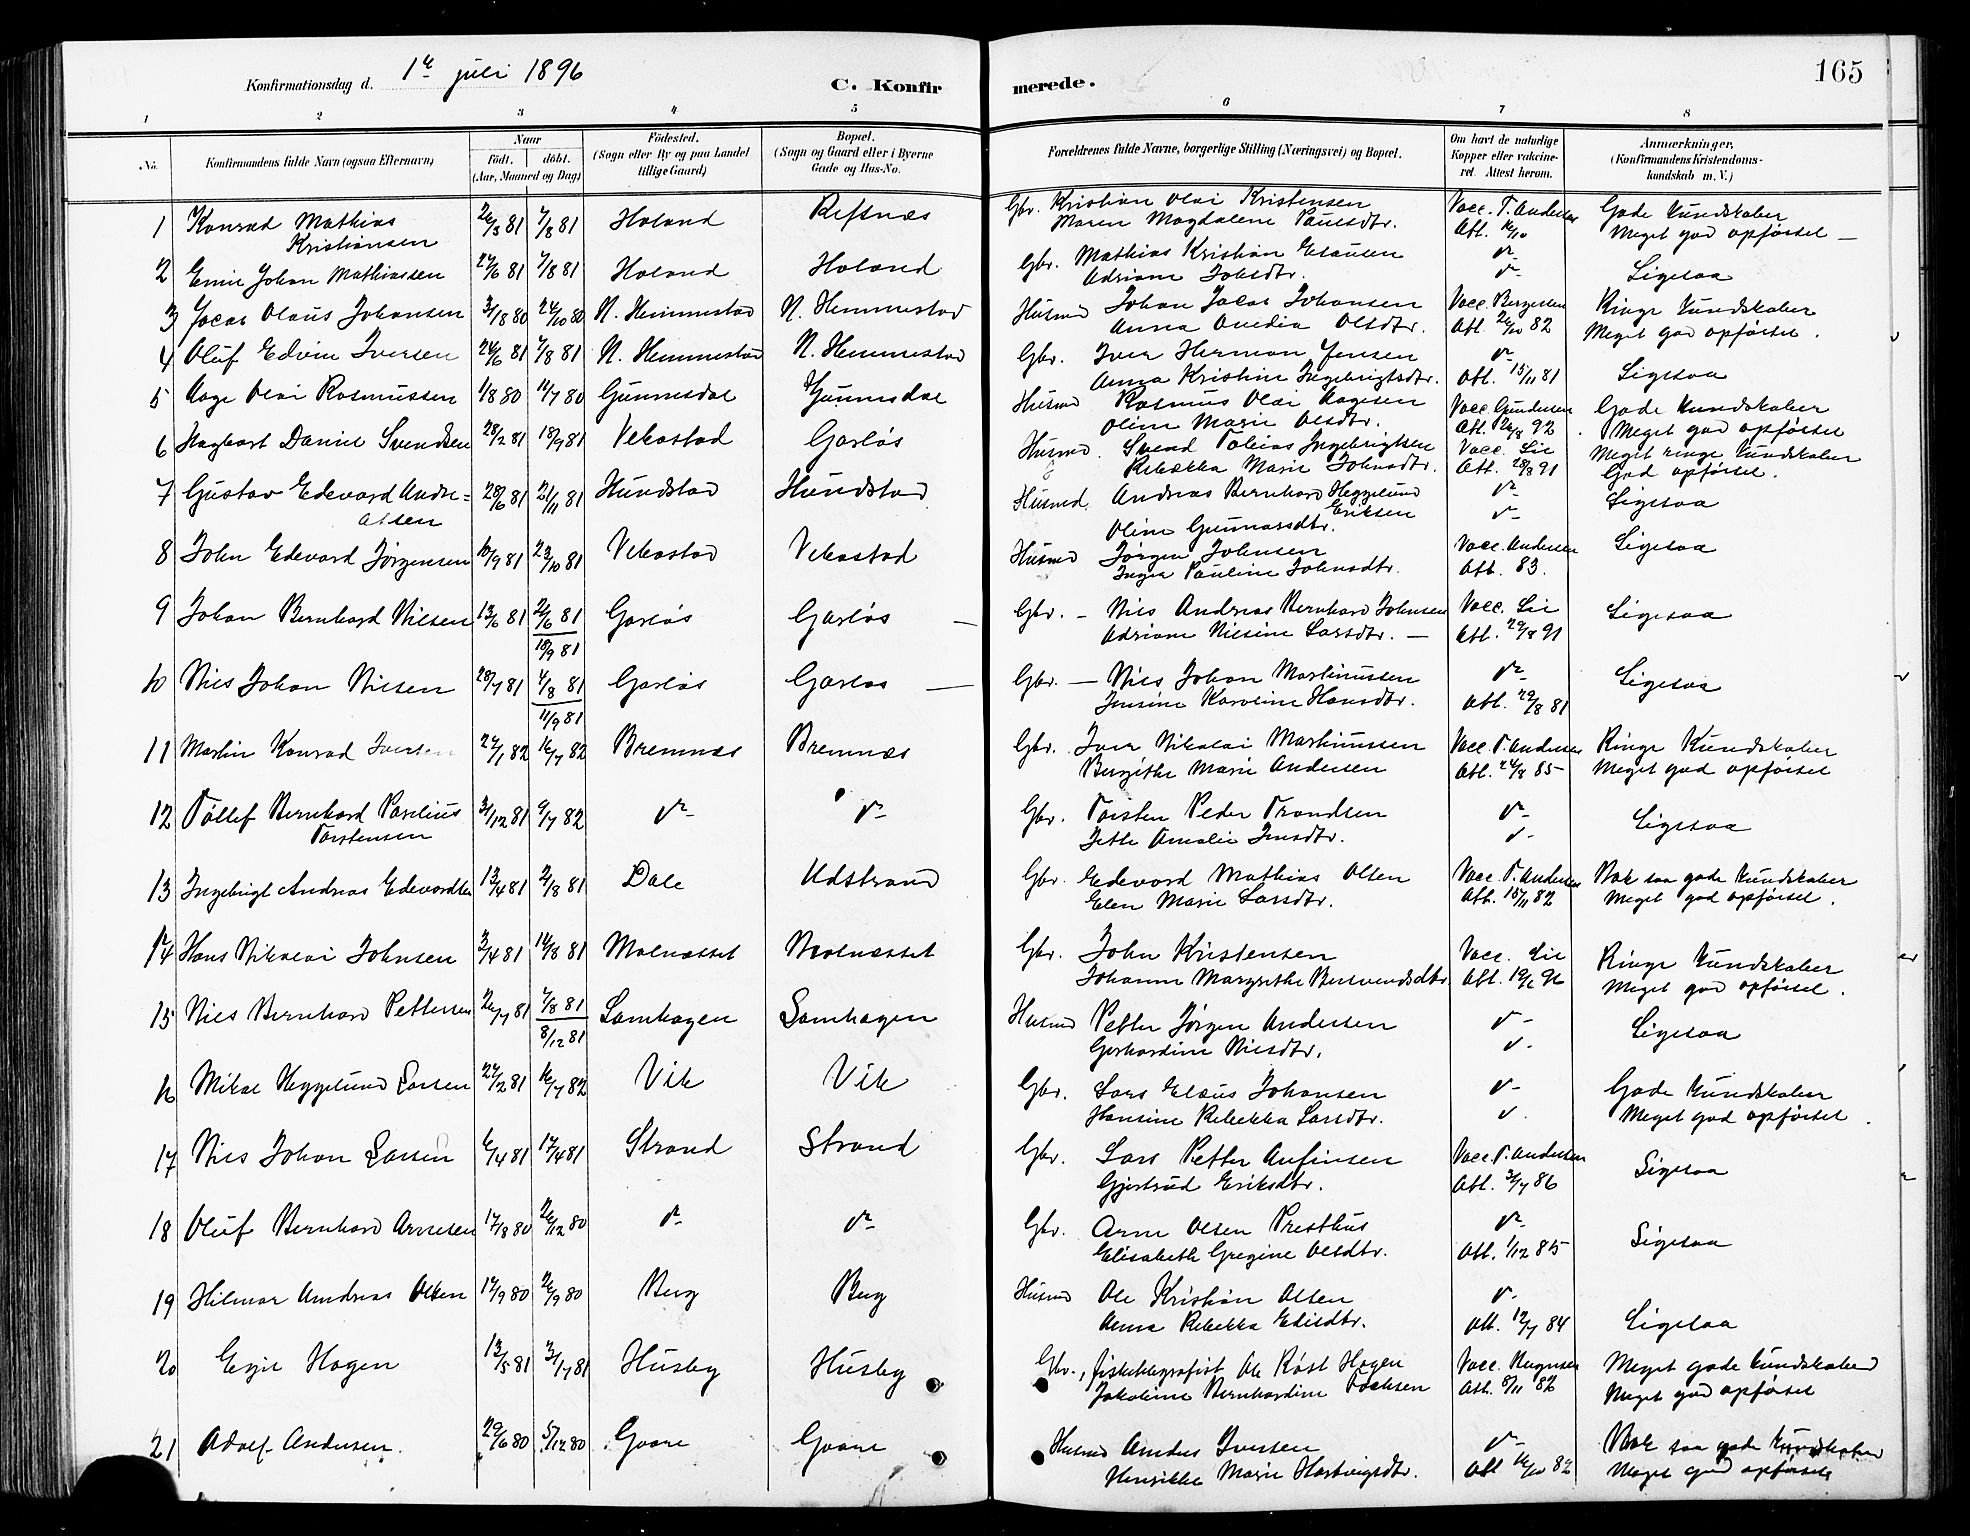 Konfirmationsdag d. 1te juli 1896
C. Konfirmerede.
165
1 2 3 4 5 6 7 8
No. Konfirmandens fulde Navn (ogsaa Efternavn) Naar født. døbt. (Aar, Maaned og Dag) Fødested. (Sogn eller By og paa Landet tillige Gaard) Bopæl. (Sogn og Gaard eller i Byerne Gade og Hus-No. Forældrenes fulde Navne, borgerlige Stilling (Næringsvei) og Bopæl. Om havt de naturlige Kopper eller vakcineret. Attest herom. Anmærkninger, (Konfirmandens Kristendomskundskab m. V.)
1 Konrad Mathias Kristiansen 26/3 81 7/8 81 Holand Refsnæs Gbr. Kristian Olai Kristensen Vacc. T. Andersen Gode Kundskaber
Maren Magdalene Paulsdtr. Att. Meget god opførsel –
2 Emil Johan Mathiassen 27/6 81 7/8 81 Holand Holand Gbr. Mathias Kristian Elausen Ligesaa
Adriane Jobsdtr.
3 Jocas Olaus Johansen 3/18 80 24/10 80 N. Hemmestad N. Hemmestad Husmd Johan Jacas Johansen Vacc. Bergersen Ringe Kundskaber
Anna Ovedia Olsdtr. Att. 26/10 82 Meget god opførsel.
4 Oluf Edvin Iversen 24/6 81 7/8 81 N. Hemmestad N. Hemmestad Gbr. Iver Herman Jensen Ligesaa
Anna Kristine Ingebrigtsdtr. Att. 15/11 81
5 Aage Olai Rasmussen 1/8 80 11/7 80 Gunnesdal Gunnesdal Husmd Rasmus Olai Aagesen Vacc. Gundersen Gode Kundskaber
Oline Marie Olsdtr. Att. 26/8 92 Meget god opførsel
6 Hagbart Daniel Svendsen 28/2 81 18/9 81 Vebostad Gasløs Husmd. Svend Tobias Ingebrigtsen Vacc. Lie Meget ringe Kundskaber
Rebekka Marie Johnsdtr. Att. 28/8 91 God opførsel.
7 Gustav Edevard Andreassen 28/6 81 21/11 81 Hundstad Hundstad Husmd. Andreas Bernhard Heggelund Eriksen Ligesaa
Oline Gunnarsdtr.
8 John Edevard Jørgensen 10/9 81 23/10 81 Vebostad Vebostad Husmd Jørgen Johnsen Vacc. Andersen Ligesaa
Inger Pauline Johnsdtr. Att. 83.
9 Johan Bernhard Nilsen 13/6 81 26/6 81 18/9 81 Gasløs Gasløs – Gbr. – Nils Andreas Bernhard Johnsen Vacc. Lie Ligesaa
Adriane Nilsine Larsdtr. – Att. 29/8 91
10 Nils Johan Nilsen 28/7 81 4/8 81 11/9 81 Gasløs Gasløs – Gbr. – Nils Johan Martinussen Ligesaa
Jensine Karoline Hansdtr. Att. 29/8 81
11 Martin Konrad Iversen 24/1 82 16/7 82 Bremnæs Bremnæs Gbr. Iver Nikolai Martinussen Vacc. T. Andersen Ringe Kundskaber
Bergithe Marie Andersen Att. 24/8 85 – Meget god opførsel
12 Tollef Bernhard Paulius Torstensen 31/12 81 9/7 82 Gbr. Torsten Peder Trondsen Ligesaa
Jette Amalie Jensdtr.
13 Ingebrigt Andreas Edevardsen 13/4 81 2/8 81 Dale Udstrand Gbr. Edevard Mathias Olsen Vacc. T. Andersen Nok saa gode Kundskaber
Elen Marie Larsdtr. Att. 15/11 82 Meget god opførsel.
14 Hans Nikolai Johnsen 3/4 81 14/8 81 Molnæsset Molnæsset Gbr. John Kristensen Vacc. Lie Ringe Kundskaber
Johanne Margrethe Att. 19/6 96 Meget god opførsel.
15 Nils Bernhard Pettersen 26/7 81 7/8 81 8/12 81 Lamhagen Lamhagen Husmd Petter Jørgen Andersen Ligesaa
Gerhardine Nilsdtr.
16 Mikal Heggelund Larsen 27/2 81 16/7 82 Vik Vik Gbr. Lars Elaus Johansen Gode Kundskaber
Hansine Rebekka Larsdtr. Meget god opførsel.
17 Nils Johan Larsen 6/4 81 17/4 81 Strand Strand Gbr. Lars Petter Anfinsen Vacc. T. Andersen Ligesaa
Gjertrud Eriksdtr. Att. 3/7 86
18 Oluf Bernhard Arnesen 17/8 80 26/12 80 Gbr. Arne Olsen Presthus Ligesaa
Elisabeth Gregine Olsdtr. Att. 1/12 85
19 Hilmar Andreas Olsen 14/9 80 26/9 80 Berg Berg Husmd Ole Kristian Olsen Ligesaa
Anna Rebekka Edisdtr. Att. 12/7 84
20 Eyje Hagen 13/5 81 31/7 81 Husby Husby Gbr., fisketelegrafist Ole Røst Hagen Vacc. Magnsen Meget gode Kundskaber
Jakobine Bernhardine Att. 8/11 82 Meget god opførsel
21 Adolf Andersen. 29/6 80 5/12 80 Gaare Gaare Husmd Andres Iversen Nok saa gode Kundskaber
Henrikke Marie Hartvigsdtr. Att 16/10 82 Meget god opførsel